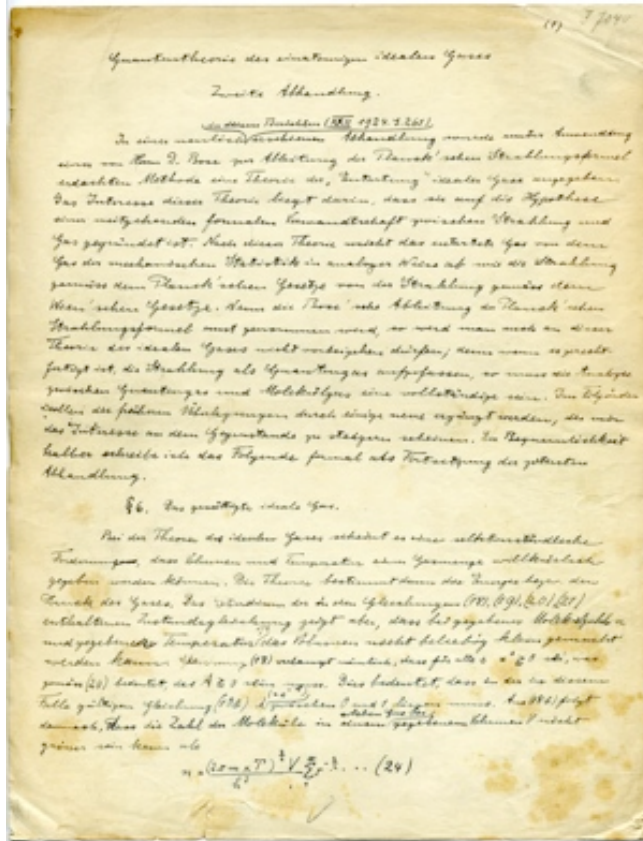 (1)
Quantentheorie des einatomigen idealen Gases
Zweite Abhandlung.
(XXII 1924. S. 261)
In einer neulich erschienenen Abhandlung wurde unter Anwendung
einer von Herrn D. Bose zur Ableitung der Planck'schen Strahlungsformel
erdachten Methode eine Theorie der „Entartung" idealer Gase angegeben.
Das Interesse dieser Theorie liegt darin, dass sie auf die Hypothese
einer weitgehenden formalen Verwandtschaft zwischen Strahlung und
Gas gegründet ist. Nach dieser Theorie weicht das entartete Gas von dem
Gas der mechanischen Statistik in analoger Weise ab wie die Strahlung
gemäss dem Planck'schen Gesetze von der Strahlung gemäss dem
Wien'schen Gesetze. Wenn die Bose'sche Ableitung der Planck'schen
Strahlungsformel ernst genommen wird, so wird man auch an dieser
Theorie des idealen Gases nicht vorbeigehen dürfen; denn wenn es gerecht-
fertigt ist, die Strahlung als Quantengas aufzufassen, so muss die Analogie
zwischen Quantengas und Molekülgas eine vollständige sein. Im Folgenden
sollen die früheren Überlegungen durch einige neue ergänzt werden, die mir
das Interesse an dem Gegenstande zu steigern scheinen. Der Bequemlichkeit
halber schreibe ich das Folgende formal als Fortsetzung der zitierten
Abhandlung.
§6. Das gesättigte ideale Gas.
Bei der Theorie des idealen Gases scheint es eine selbstverständliche
Forderung, dass Volumen und Temperatur einer Gasmenge willkürlich
gegeben werden können. Die Theorie bestimmt dann die Energie bezw. den
Druck des Gases. Das Studium der in den Gleichungen (18), (19), (20), (21)
enthaltenen Zustandsgleichung zeigt aber, dass bei gegebener Molekülzahl n
und gegebener Temperatur das Volumen nicht beliebig klein gemacht
werden kann. Gleichung (18) verlangt nämlich, dass für alle s αˢ ≧ 0 sei, was
gemäss (20) bedeutet, dass A ≧ 0 sein muss. Dies bedeutet, dass in der in diesem
Falle gültigen Gleichung (18b) λ zwischen 0 und 1 liegen muss. Aus (18b) folgt
demnach, dass die Zahl der Moleküle in einem gegebenen Volumen V nicht
grösser sein kann als
n = (2πmκT)^(3/2) V / h³ Σ τ^(-3/2) . . . (24)